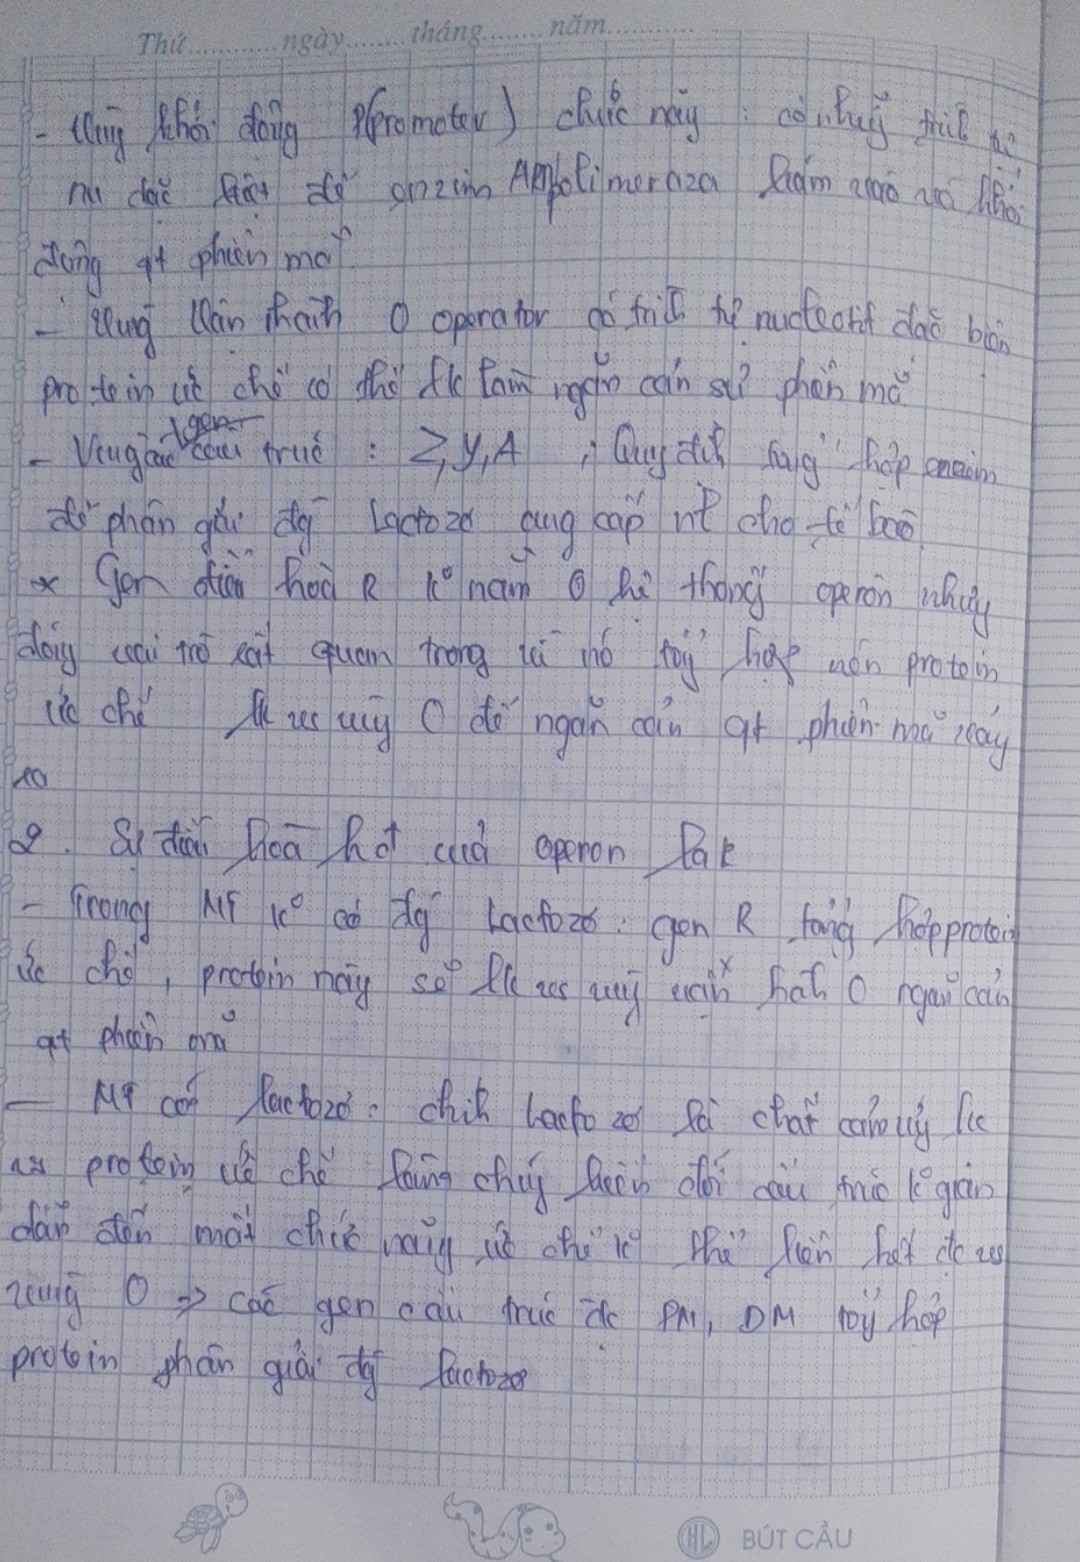 Thứ ngày tháng năm
- vùng khởi động P(promoter) chức năng : có những trìh
nu đặc biệt để enzim ARNpolimeraza bám vào và khởi
động qt phiên mã
- Vùng Vận hành O operator có trìh tự nucleotit đặc biệt
protein ức chế có thể lk làm ngăn cản sự phiên mã
- Vùng các gen cấu trúc : Z, Y, A ; Quy địh tổng hợp enzim
để phân giải đg Lactozo cung cấp nl cho tế bào
* Gen điều hoà R ko nằm ở hệ thống operon nhưng
đóng vai trò rất quan trọng vì nó tổg hợp nên protein
ức chế lk vs vùg O để ngăn cản qt phiên mã xảy
ra
2. Sự điều hoà hđ của operon Lak
- Trong MT ko có đg Lactozo : gen R tổng hợp protein
ức chế, protein này sẽ lk vs vùg vận hàh O ngăn cản
qt phiên mã
- MT có lactozo : chíh Lactozo là chất cảm ứg lk
vs protein ức chế làm chúg biến đổi cấu trúc ko gian
dẫn đến mất chức năng ức chế ko thể liên kết đc vs
vùng O => các gen cấu trúc đc PM, DM tổg hợp
protein phân giải đg lactozo
HL BÚT CẦU